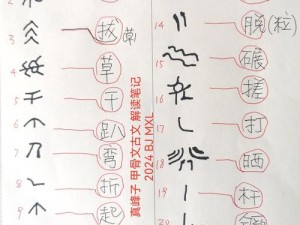 3 拔(草)
4 草
5 干
6 趴
7 弯
8 折
9 起
真峰子 甲骨文古文 解读笔记
2024 BJ MXL
14 脱(粒)
15 碾
16 搓
17 打
18 晒
19 杆
20